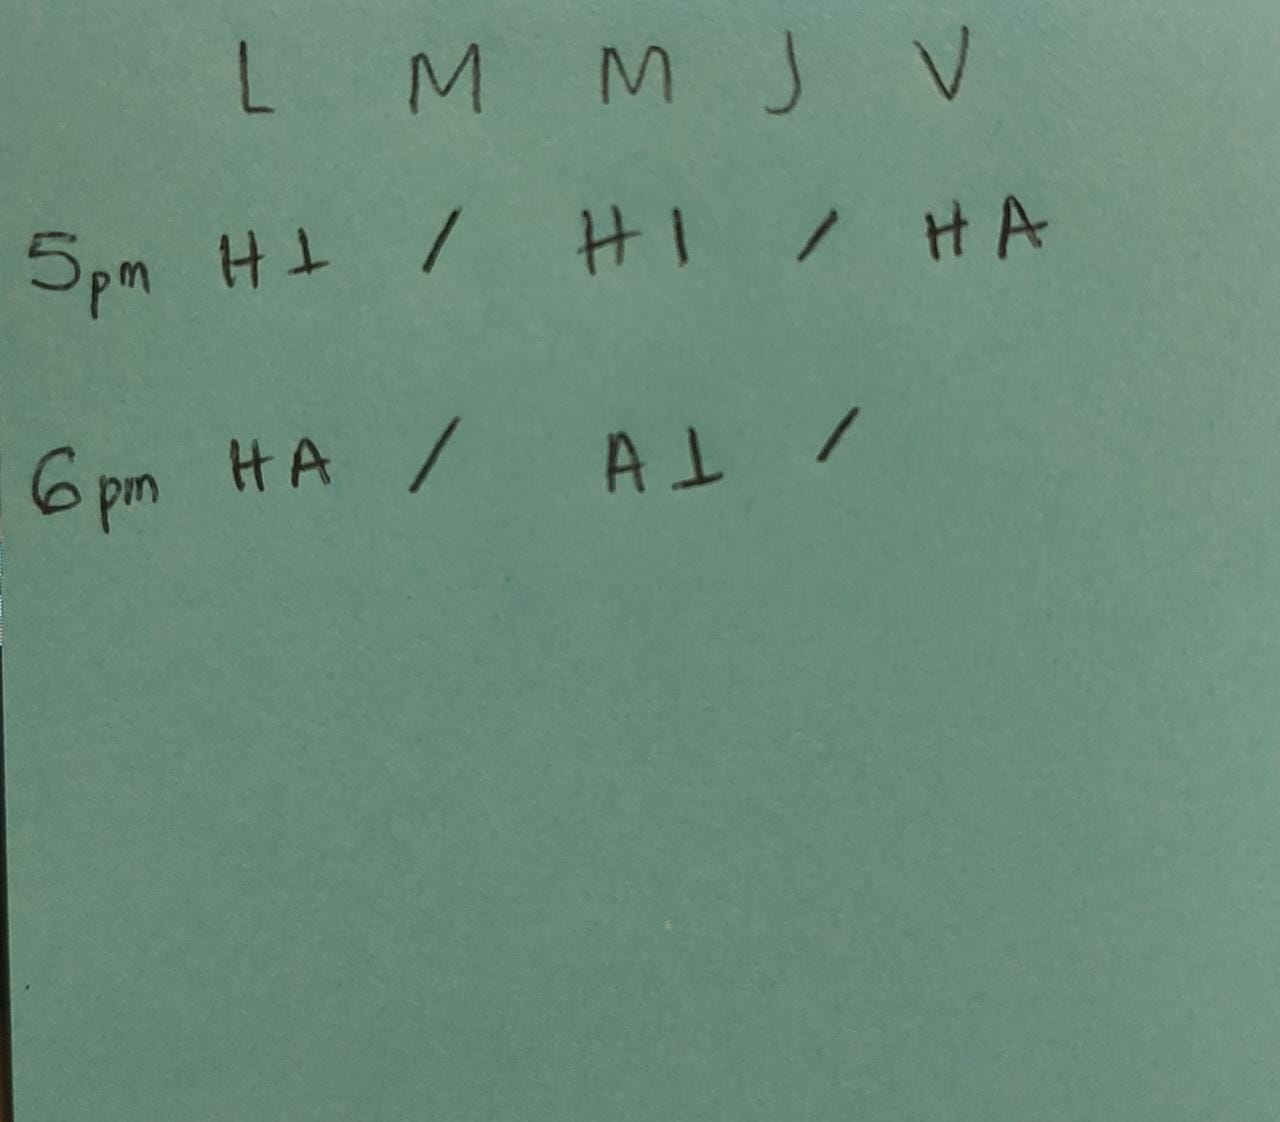 L M M J V
5pm HI / HI / HA
6pm HA / AI /